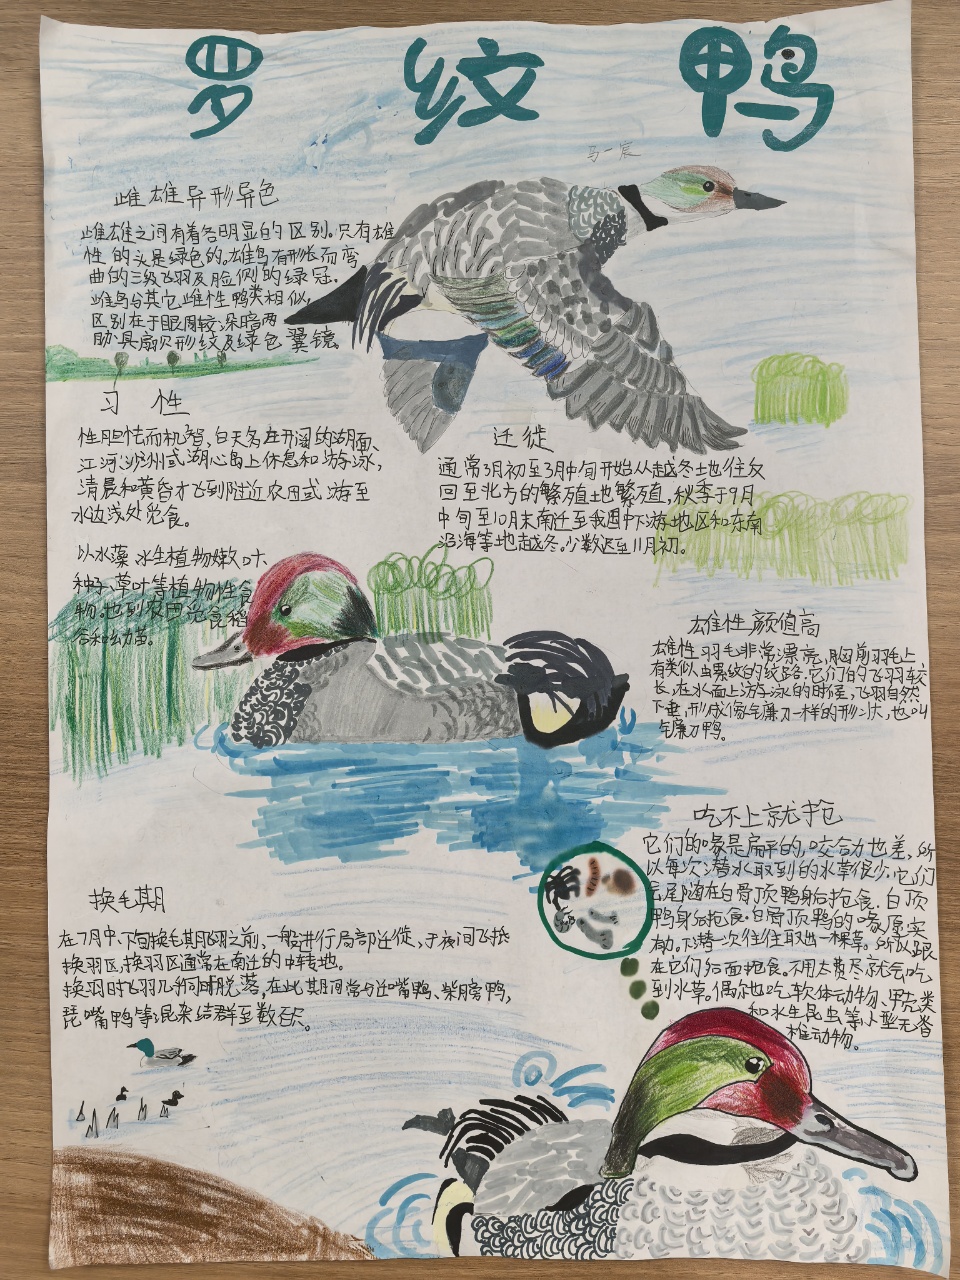 罗纹鸭
马一宸
雌雄异形异色
雌雄之间有着各明显的区别。只有雄
性的头是绿色的。雄鸟有形长而弯
曲的三级飞羽及脸侧的绿冠.
雌鸟与其它雌性鸭类相似,
区别在于眼周较深暗两
胁具扇贝形纹及绿色翼镜。
习性
性胆怯而机智,白天多在开阔的湖面、
江河、沙洲或湖心岛上休息和游泳,
清晨和黄昏才飞到附近农田或游至
水边浅处觅食。
以水藻、水生植物嫩叶、
种子、草叶等植物性食
物。也到农田觅食稻
谷和幼苗。
迁徙
通常3月初至3月中旬开始从越冬地往
回至北方的繁殖地繁殖,秋季于9月
中旬至10月末南迁至我国中下游地区和东南
沿海等地越冬。少数迟至11月初。
雄性颜值高
雄性羽毛非常漂亮,胸前羽毛上
有类似虫螺纹的纹路.它们的飞羽较
长,在水面上游泳的时候,飞羽自然
下垂,形成像镰刀一样的形状,也叫
镰刀鸭。
吃不上就抢
它们的喙是扁平的,咬合力也差,所
以每次潜水取到的水草很少.它们
会尾随在白骨顶鸭身后抢食.白顶
鸭身后抢食.白骨顶鸭的喙厚实
有力。下潜一次往往取出一棵草。所以跟
在它们后面抢食。不用太费尽就会吃
到水草。偶尔也吃软体动物、甲壳类
和水生昆虫等小型无脊
椎动物。
换毛期
在7月中、下旬换毛其飞羽之前,一般进行局部迁徙,于夜间飞抵
换羽区,换羽区通常在南迁的中转地。
换羽时飞羽几乎同时脱落,在此期间常与近嘴鸭、紫膀鸭,
琵嘴鸭等混杂结群至数百只。